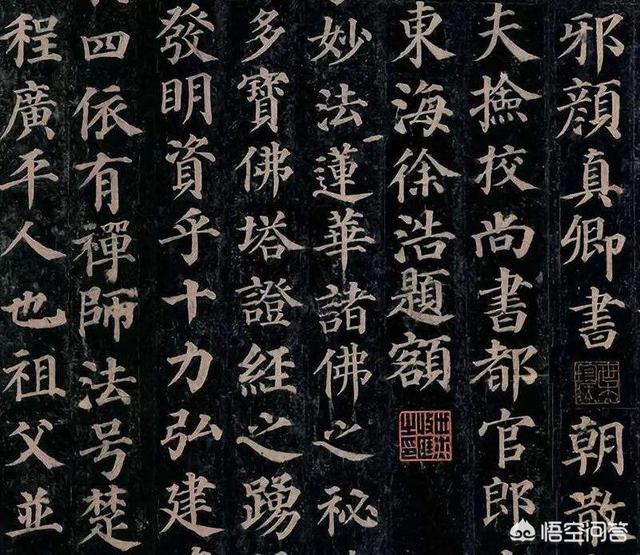 邪顏真卿書 朝散
夫撿校尚書都官郎
東海徐浩題額
妙法蓮華諸佛之秘
多寶佛塔證經之踴
發明資乎十力弘建
四依有禪師法号楚
程廣平人也祖父並
悟空问答